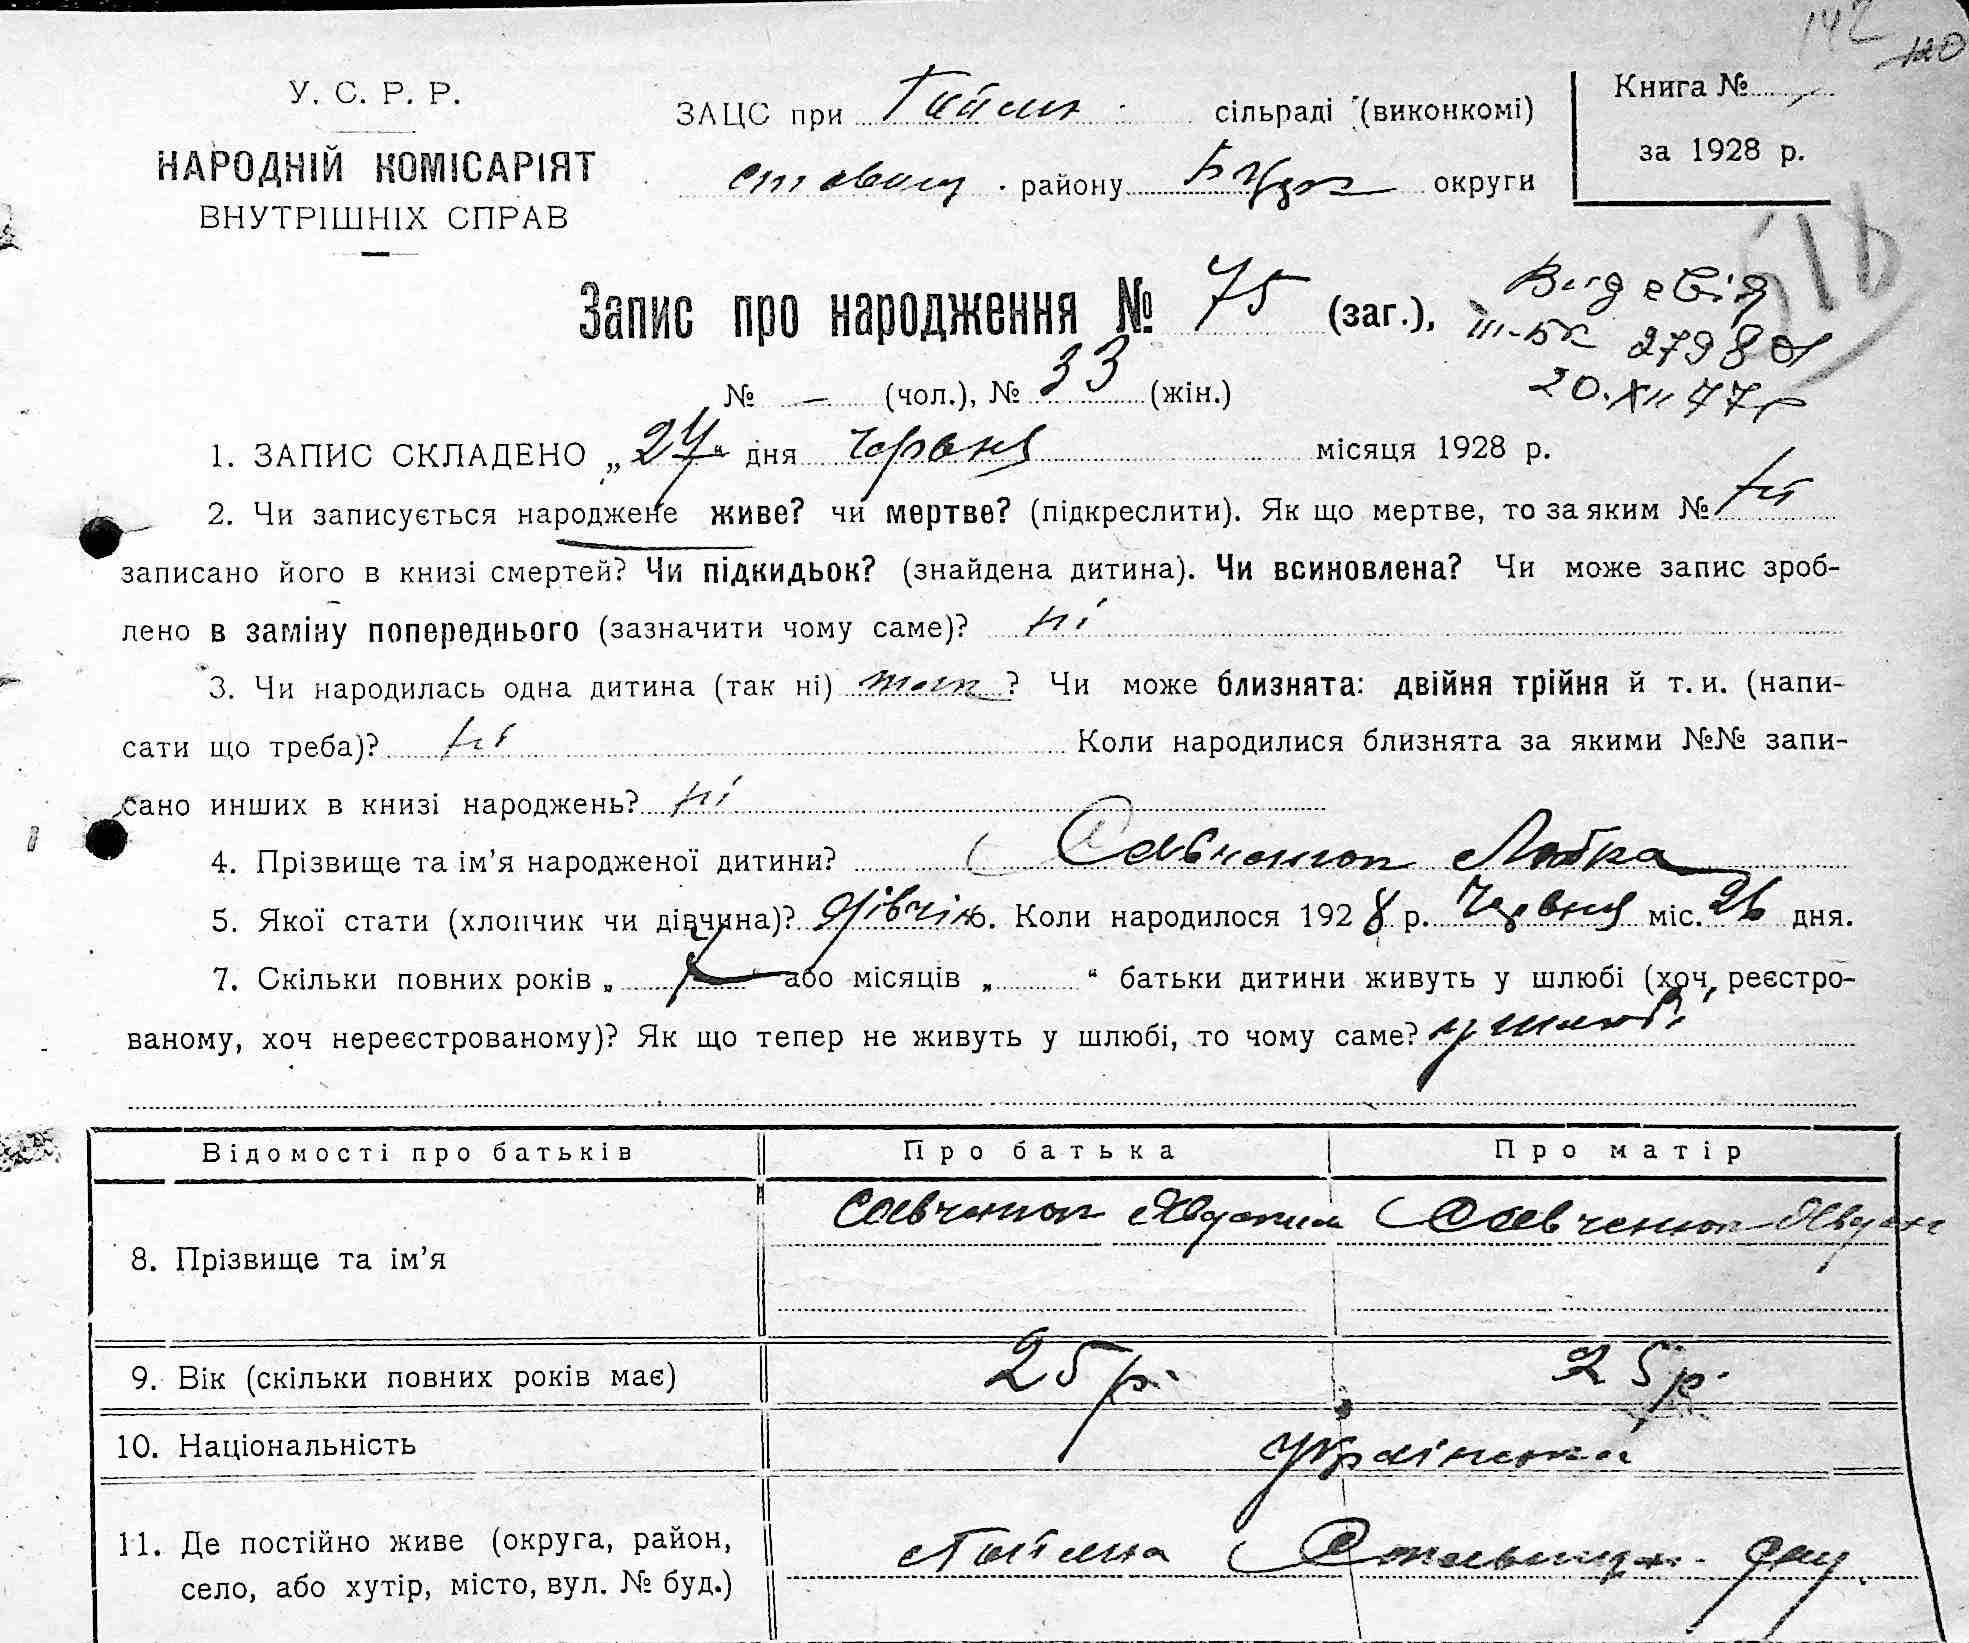 142
120
У. С. Р. Р.
НАРОДНІЙ КОМІСАРІЯТ
ВНУТРІШНІХ СПРАВ
ЗАЦС при сільраді (виконкомі)
району округи
Книга №
за 1928 р.
Запис про народження № 75 (заг.),
№ — (чол.), № 33 (жін.)
2798
20.XII 47р
1. ЗАПИС СКЛАДЕНО „27“ дня червня місяця 1928 р.
2. Чи записується народжене живе? чи мертве? (підкреслити). Як що мертве, то за яким № ні
записано його в книзі смертей? Чи підкидьок? (знайдена дитина). Чи всиновлена? Чи може запис зроб-
лено в заміну попереднього (зазначити чому саме)? ні
3. Чи народилась одна дитина (так ні) так ? Чи може близнята: двійня трійня й т. и. (напи-
сати що треба)? ні Коли народилися близнята за якими №№ запи-
сано инших в книзі народжень? ні
4. Прізвище та ім’я народженої дитини? Савченкоп
5. Якої стати (хлопчик чи дівчина)? дівчін. Коли народилося 1928 р. Червня міс. 26 дня.
7. Скільки повних років „ “ або місяців „ “ батьки дитини живуть у шлюбі (хоч, реєстро-
ваному, хоч нереєстрованому)? Як що тепер не живуть у шлюбі, то чому саме? у шлюбі
Відомості про батьків
Про батька
Про матір
8. Прізвище та ім’я
9. Вік (скільки повних років має) 25 р. 25 р.
10. Національність Українська
11. Де постійно живе (округа, район,
село, або хутір, місто, вул. № буд.)